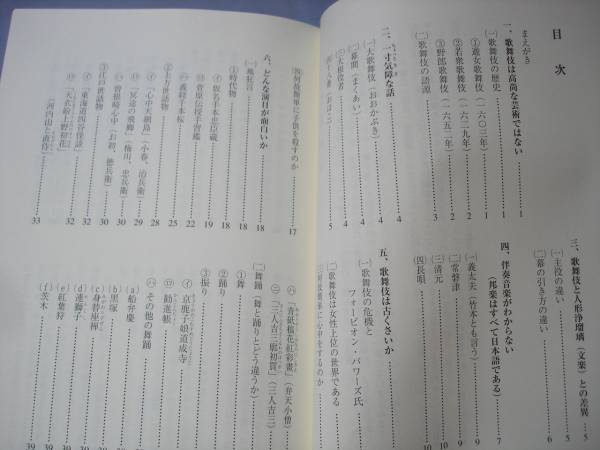 目次
まえがき
一、歌舞伎は高尚な芸術ではない………1
㈠歌舞伎の歴史………1
①遊女歌舞伎(一六〇三年)………1
②若衆歌舞伎(一六二九年)………2
③野郎歌舞伎(一六五二年)………3
㈡歌舞伎の語源………3
二、一寸気障な話………4
㈠大歌舞伎(おおかぶき)………4
㈡幕間(まくあい)………4
㈢大根役者………4
5
三、歌舞伎と人形浄瑠璃(文楽)との差異………5
㈠主役の違い………5
㈡幕の引き方の違い………6
四、伴奏音楽がわからない
(邦楽はすべて日本語である)………7
㈠義太夫(竹本とも言う)………9
㈡常磐津………9
㈢清元………10
㈣長唄………10
五、歌舞伎は古くさいか
㈠歌舞伎の危機と
フォービオン・パワーズ氏
㈡歌舞伎は女性上位の世界である
に心中をするのか
㈣何故簡単に子供を殺すのか………17
六、どんな演目が面白いか………18
㈠地狂言………18
①時代物………18
㋑仮名手本忠臣蔵………19
㋺菅原伝授手習鑑………22
㋩義経千本桜………25
②上方の世話物………28
㋑「心中天網島」(小春、治兵衛)………28
㋺「冥途の飛脚」(梅川、忠兵衛)………29
㋩曽根崎心中(お初、徳兵衛)………30
③江戸の世話物………30
㋑「東海道四谷怪談」………32
㋺「天衣紛上野初花」………32
(河内山と直侍)………33
㋩「青砥稿花紅彩画」(弁天小僧)
㋥「三人吉三廓初買」(三人吉三)
㈡舞踊(舞と踊りとどう違うか)
①舞
②踊り
③振り
㋑京鹿子娘道成寺
㋺勧進帳
㋩その他の舞踊
ⓐ船弁慶
ⓑ黒塚
ⓒ身替座禅
ⓓ連獅子
ⓔ紅葉狩
ⓕ茨木………39